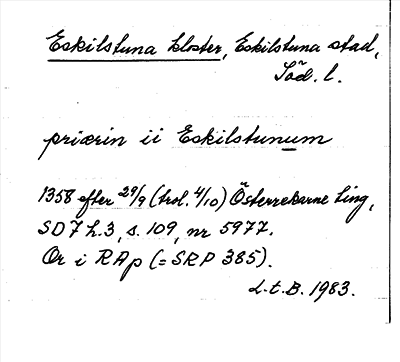 Eskilstuna kloster, Eskilstuna stad,
Söd. l.
priærin ii Eskilstunum
1358 efter 29/9 (trol. 4/10) Österrekarne ting,
SD 7 h.3, s. 109, nr 5977.
Or i RAp (= SRP 385).
L.t.B. 1983.